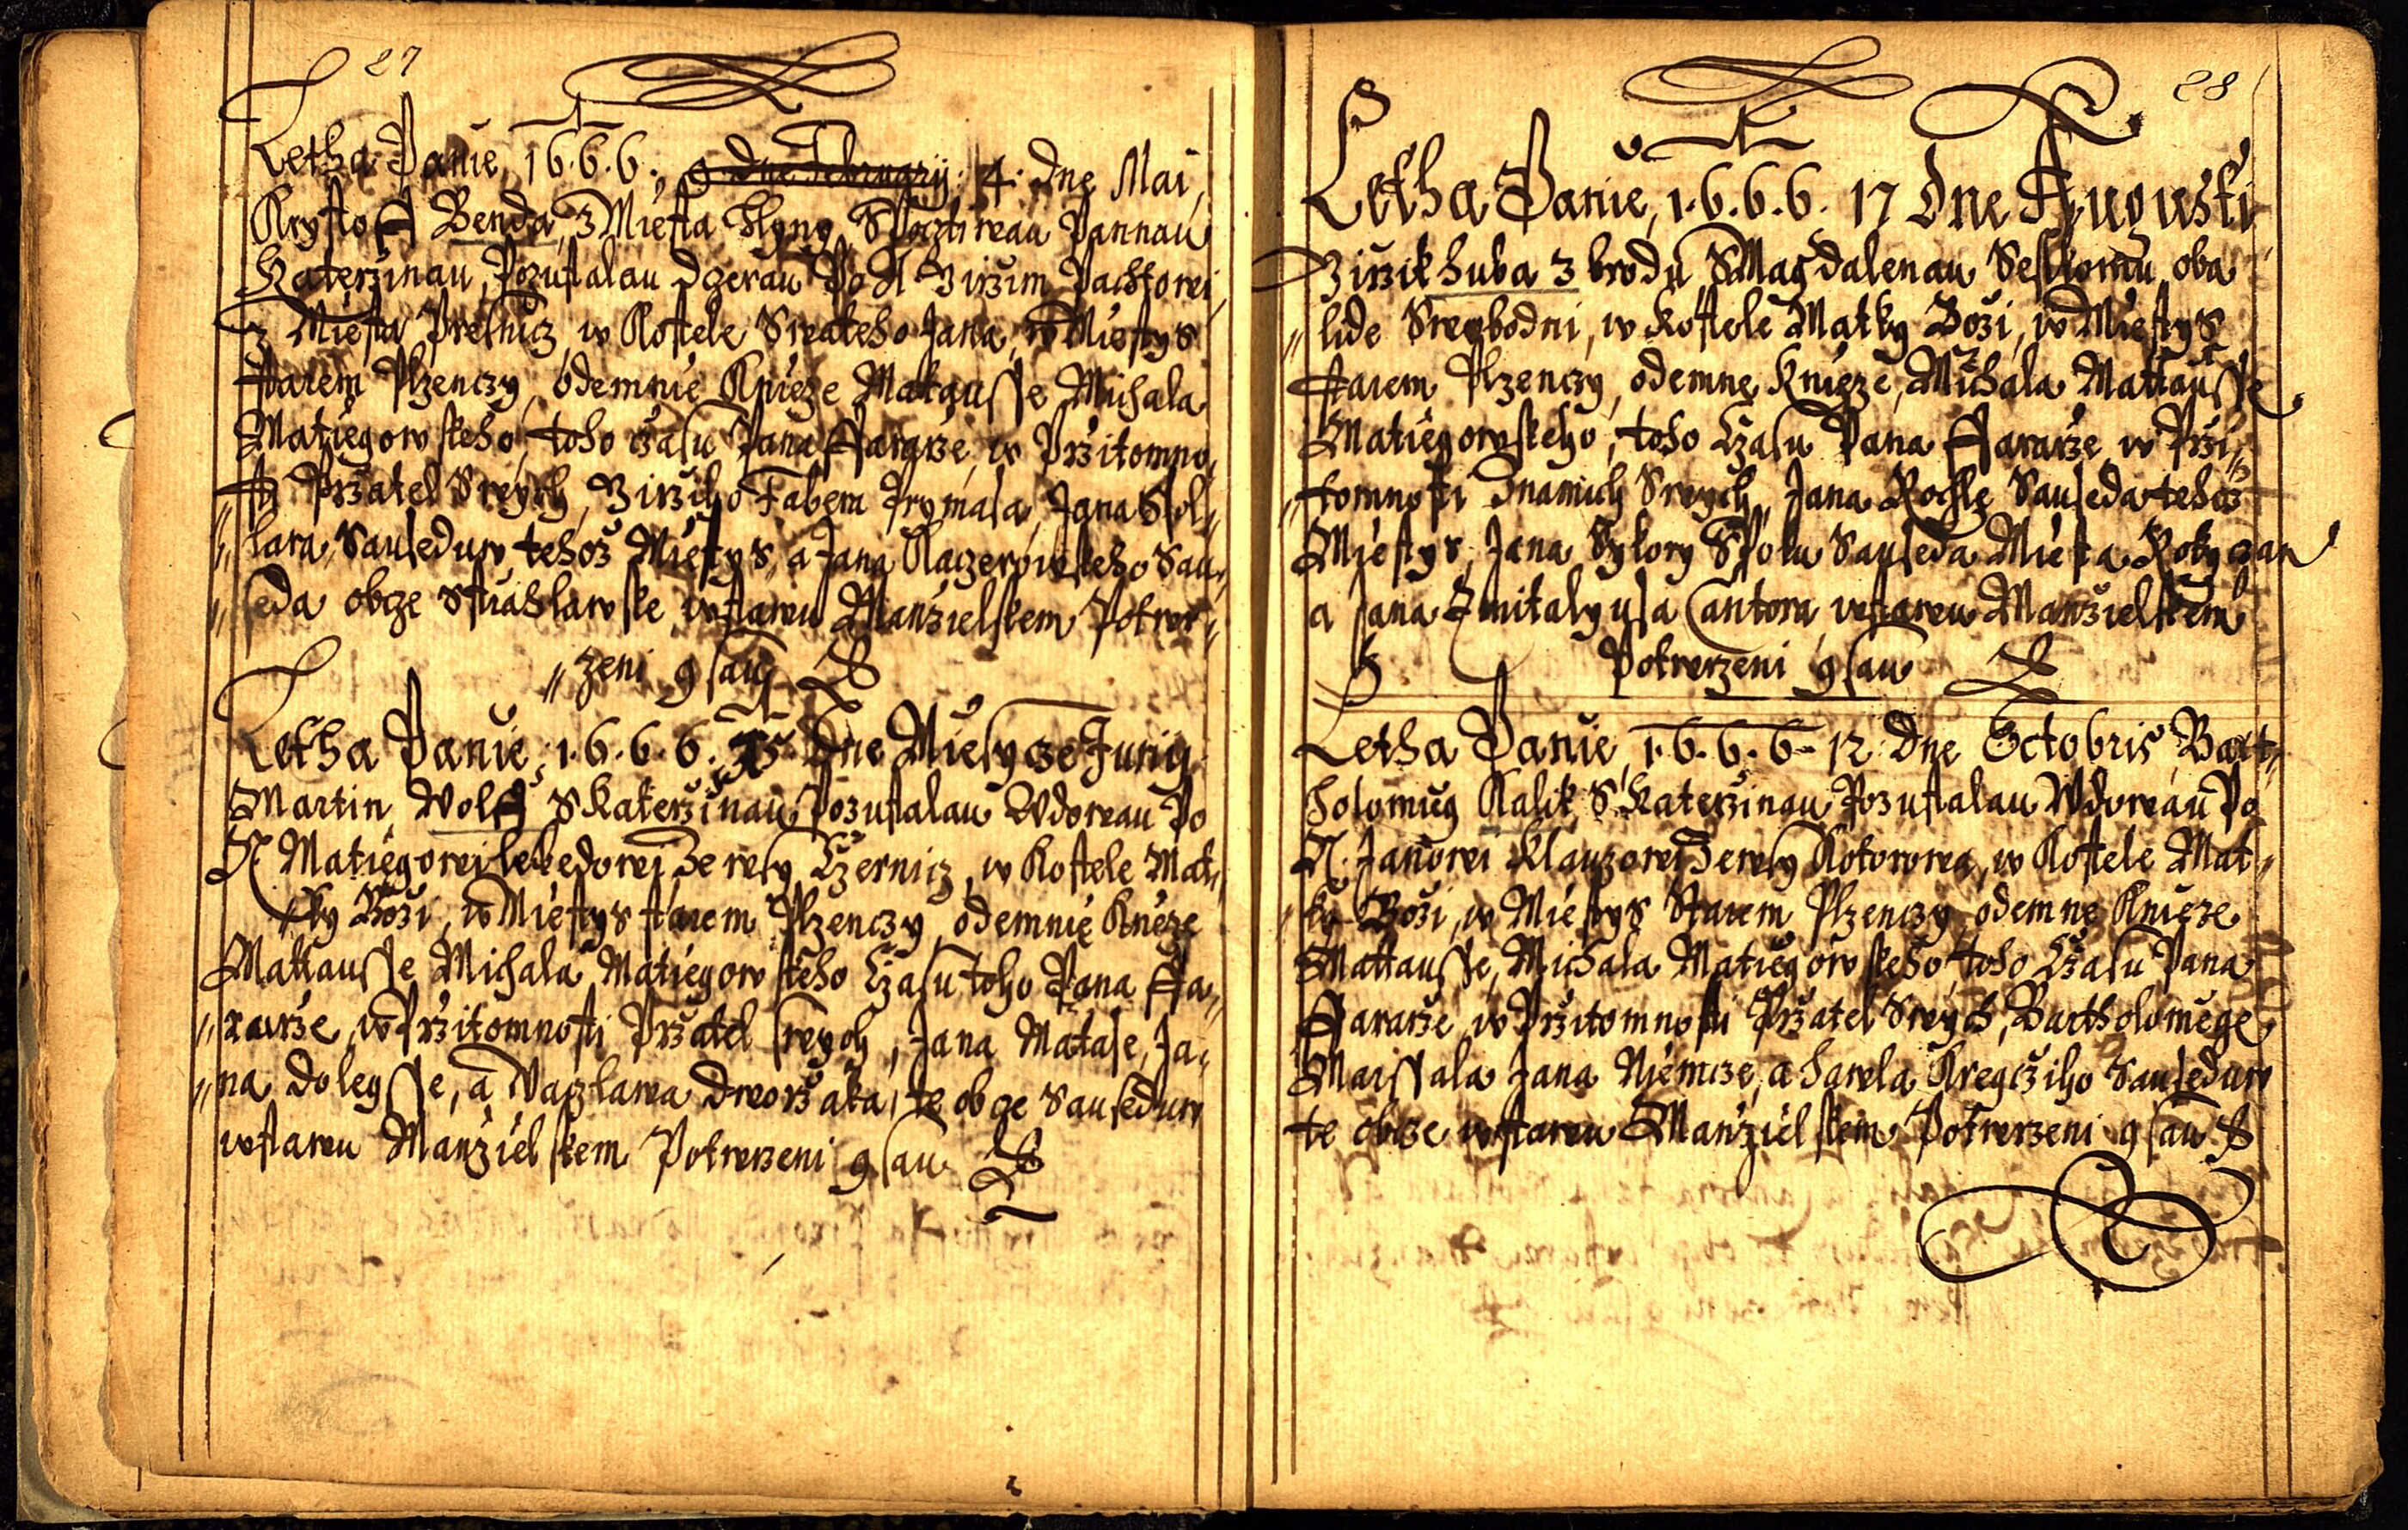 27
Letha Panie, 1.6.6.6. 9 dne February. 4. dne Mai,
Krystoff Benda, z Miesta Hlyny, S Pocztiwau Pannau
Katerzinau, Pozustalau Dczerau Po N Girzim Pachtowi
z Miesta Presnicz, w Kostele Swateho Jana, w Miestys
starem Plzenczy, odemnie Knieze Matausse Michala
Matiegowskeho, toho czasu Pana ffararze, w Przitomno„
„sti Przatel Swych, Girziho Fabera Prymasa, Jana
„lara, Sauseduw, tehoz Miestys, a Jana Kaczerowskeho Sau„
„seda obcze Stiahlawske, wstawu Manzielskem Potwr„
„zeni gsau
Letha Panie, 1.6.6.6. dne Miesycze Juny
Martin Wolff S Katerzinau Pozustalau Wdowau Po
N Matiegowi Lebedowi Ze Wsy Czernicz, w Kostele Mat„
„ky Bozi, w Miestys starem Plzenczy, odemnie Kneze
Mattausse Michala Matiegowskeho Czasu toho Pana ffa„
„rarze, w Przitomnosti Przatel swych, Jana Matase, Ja„
„na Dolegsse, a Waczlawa Dworzaka, te obcze Sauseduw
wstawu Manzielskem Potwrzeni gsau
28
Letha Panie, 1.6.6.6. 17 dne Augusti
Girzik huba z brodu, S Magdalenau oba
„lide Swobodni, w Kostele Matky Bozi, w Miestys
starem Plzenczy, odemne Knieze, Michala Mattausse
Matiegowskeho, toho Czasu Pana ffararze w Przi„
„tomnosti Swych, Jana Rochle Sauseda tehoz
Miestys, Jana Sykory Spolu Sauseda Miesta Rokyczan
a Jana Cantora, wstawu Manzielskem
Potwrzeni gsau
Letha Panie, 1.6.6.6. 12 dne Octobris Bart„
holomieg Kalik S Katerzinau Pozustalau Wdowau Po
N. Janowi Klauzowi Ze wsy Kotowa, w Kostele Mat„
„ky Bozi, w Miestys Starem Plzenczy odemne Knieze
Mattausse, Michala Matiegowskeho, toho Czasu Pana
ffararze, w Przitomnosti Przatel Swych, Bartholomege
Marssala Jana Niemcze, a hawla Kregcziho Sauseduw
te obcze wstawu Manzielskem Potwrzeni gsau